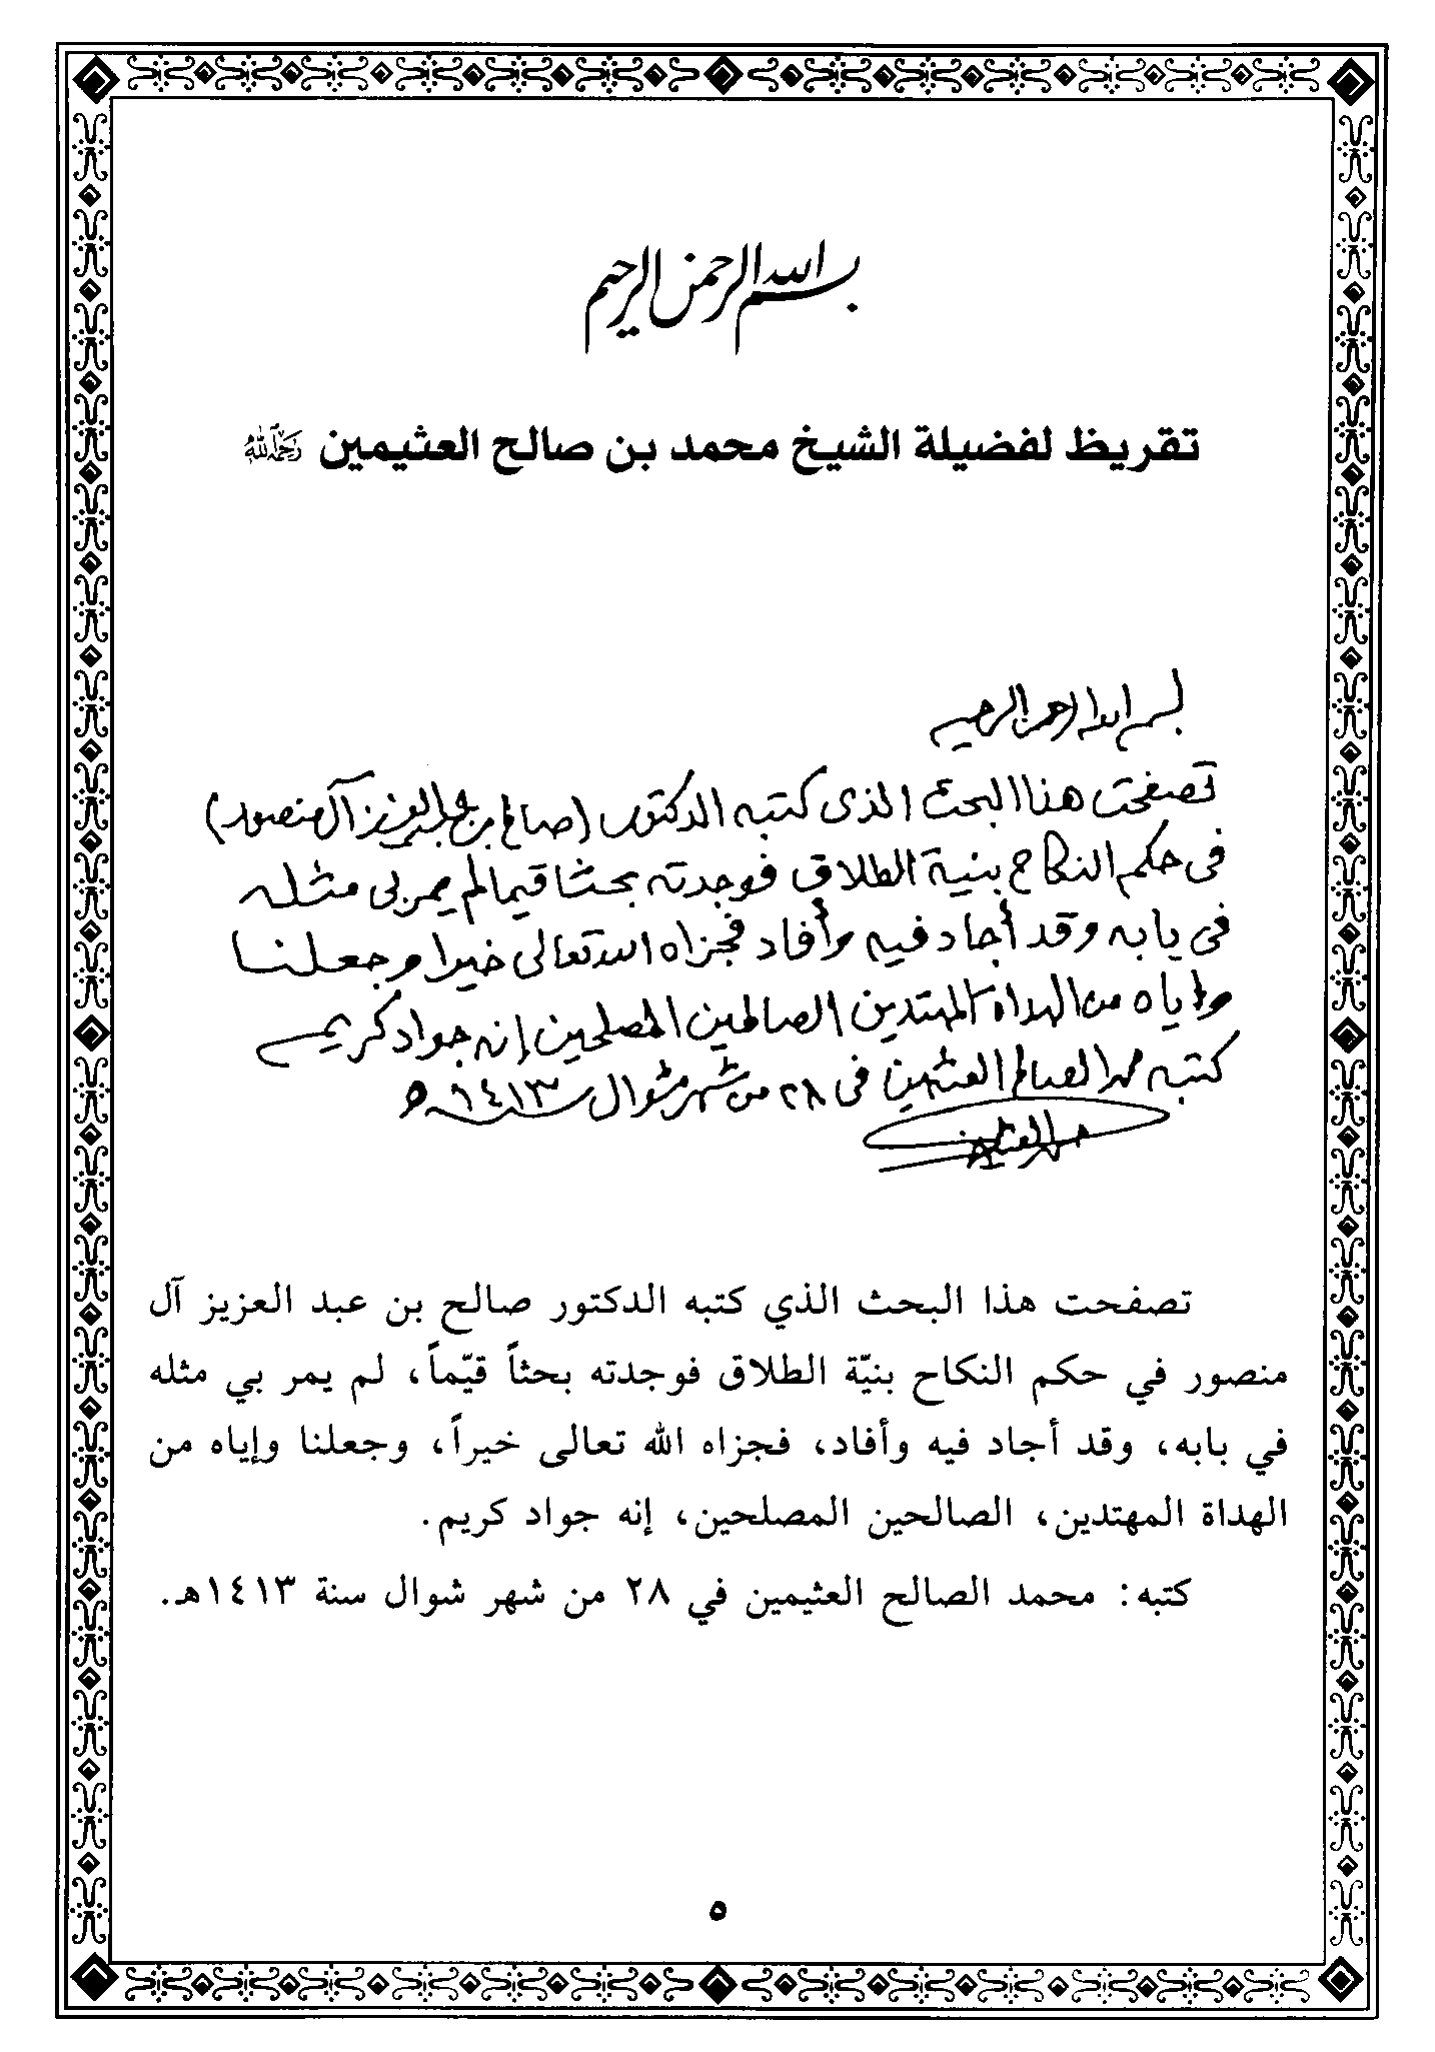 بسم الله الرحمن الرحيم
تقريظ لفضيلة الشيخ محمد بن صالح العثيمين رحمه الله
بسم الله الرحمن الرحيم
تصفحت هذا البحث الذى كتبه الدكتور (صالح بن عبد العزيز آل منصور)
فى حكم النكاح بنية الطلاق فوجدته بحثا قيما لم يمر بى مثله
فى بابه وقد أجاد فيه وأفاد فجزاه الله تعالى خيرا وجعلنا
وإياه من الهداة المهتدين الصالحين المصلحين إنه جواد كريم
كتبه محمد الصالح العثيمين فى ٢٨ من شهر شوال سنة ١٤١٣ ه
محمد العثيمين
تصفحت هذا البحث الذي كتبه الدكتور صالح بن عبد العزيز آل
منصور في حكم النكاح بنيّة الطلاق فوجدته بحثاً قيّماً، لم يمر بي مثله
في بابه، وقد أجاد فيه وأفاد، فجزاه الله تعالى خيراً، وجعلنا وإياه من
الهداة المهتدين، الصالحين المصلحين، إنه جواد كريم.
كتبه: محمد الصالح العثيمين في ٢٨ من شهر شوال سنة ١٤١٣هـ.
٥